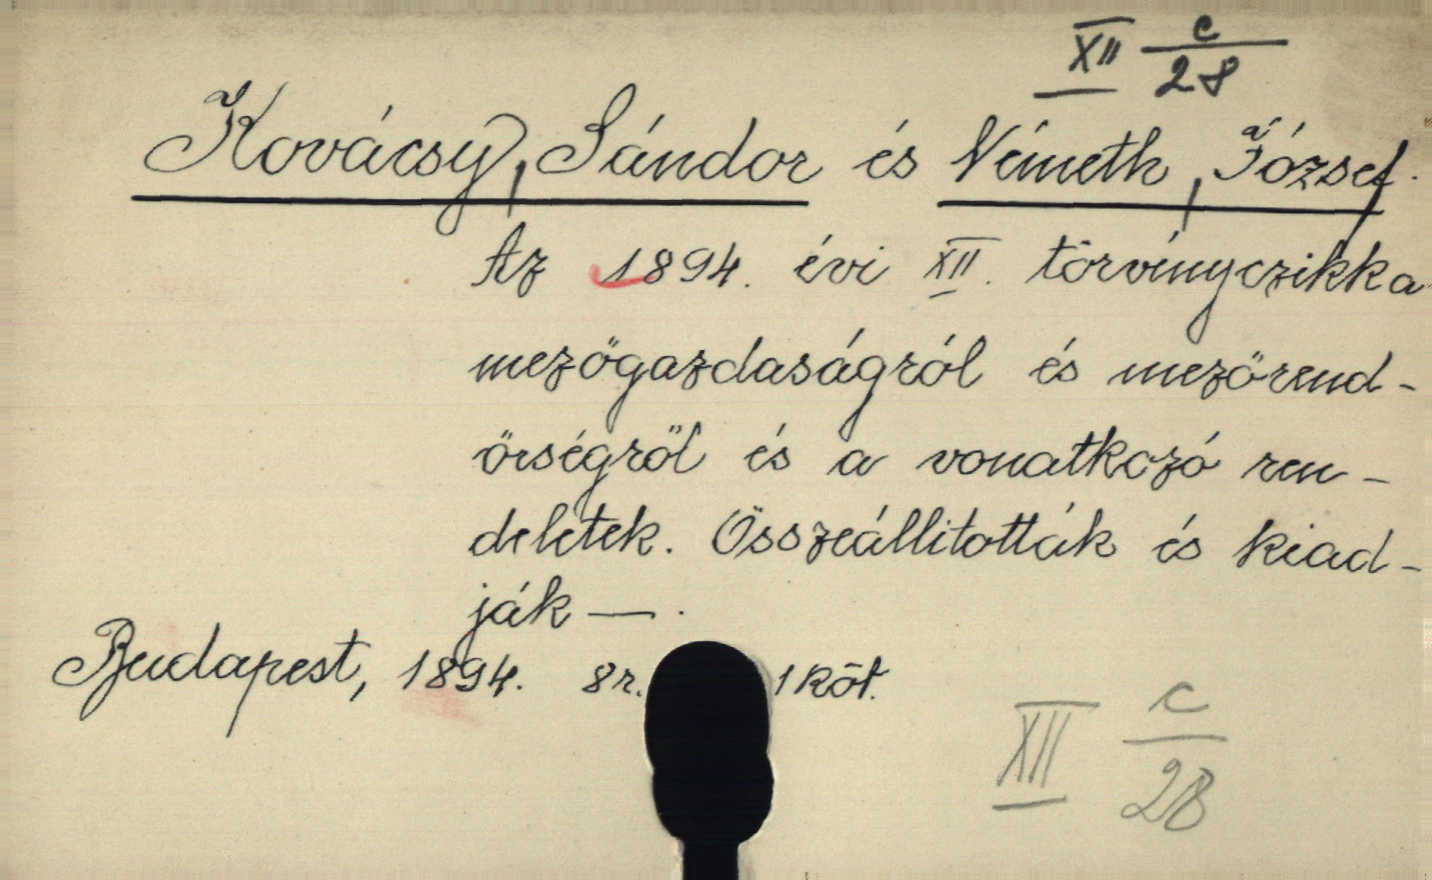 XII c/28
Kovácsy, Sándor és Németh, József.
Az 1894. évi XII. törvényczikk a
mezőgazdaságról és mezőrend-
őrségről és a vonatkozó ren-
deletek. Összeállitották és kiad-
ják — .
Budapest, 1894. 8r. 1 köt.
XII c/28